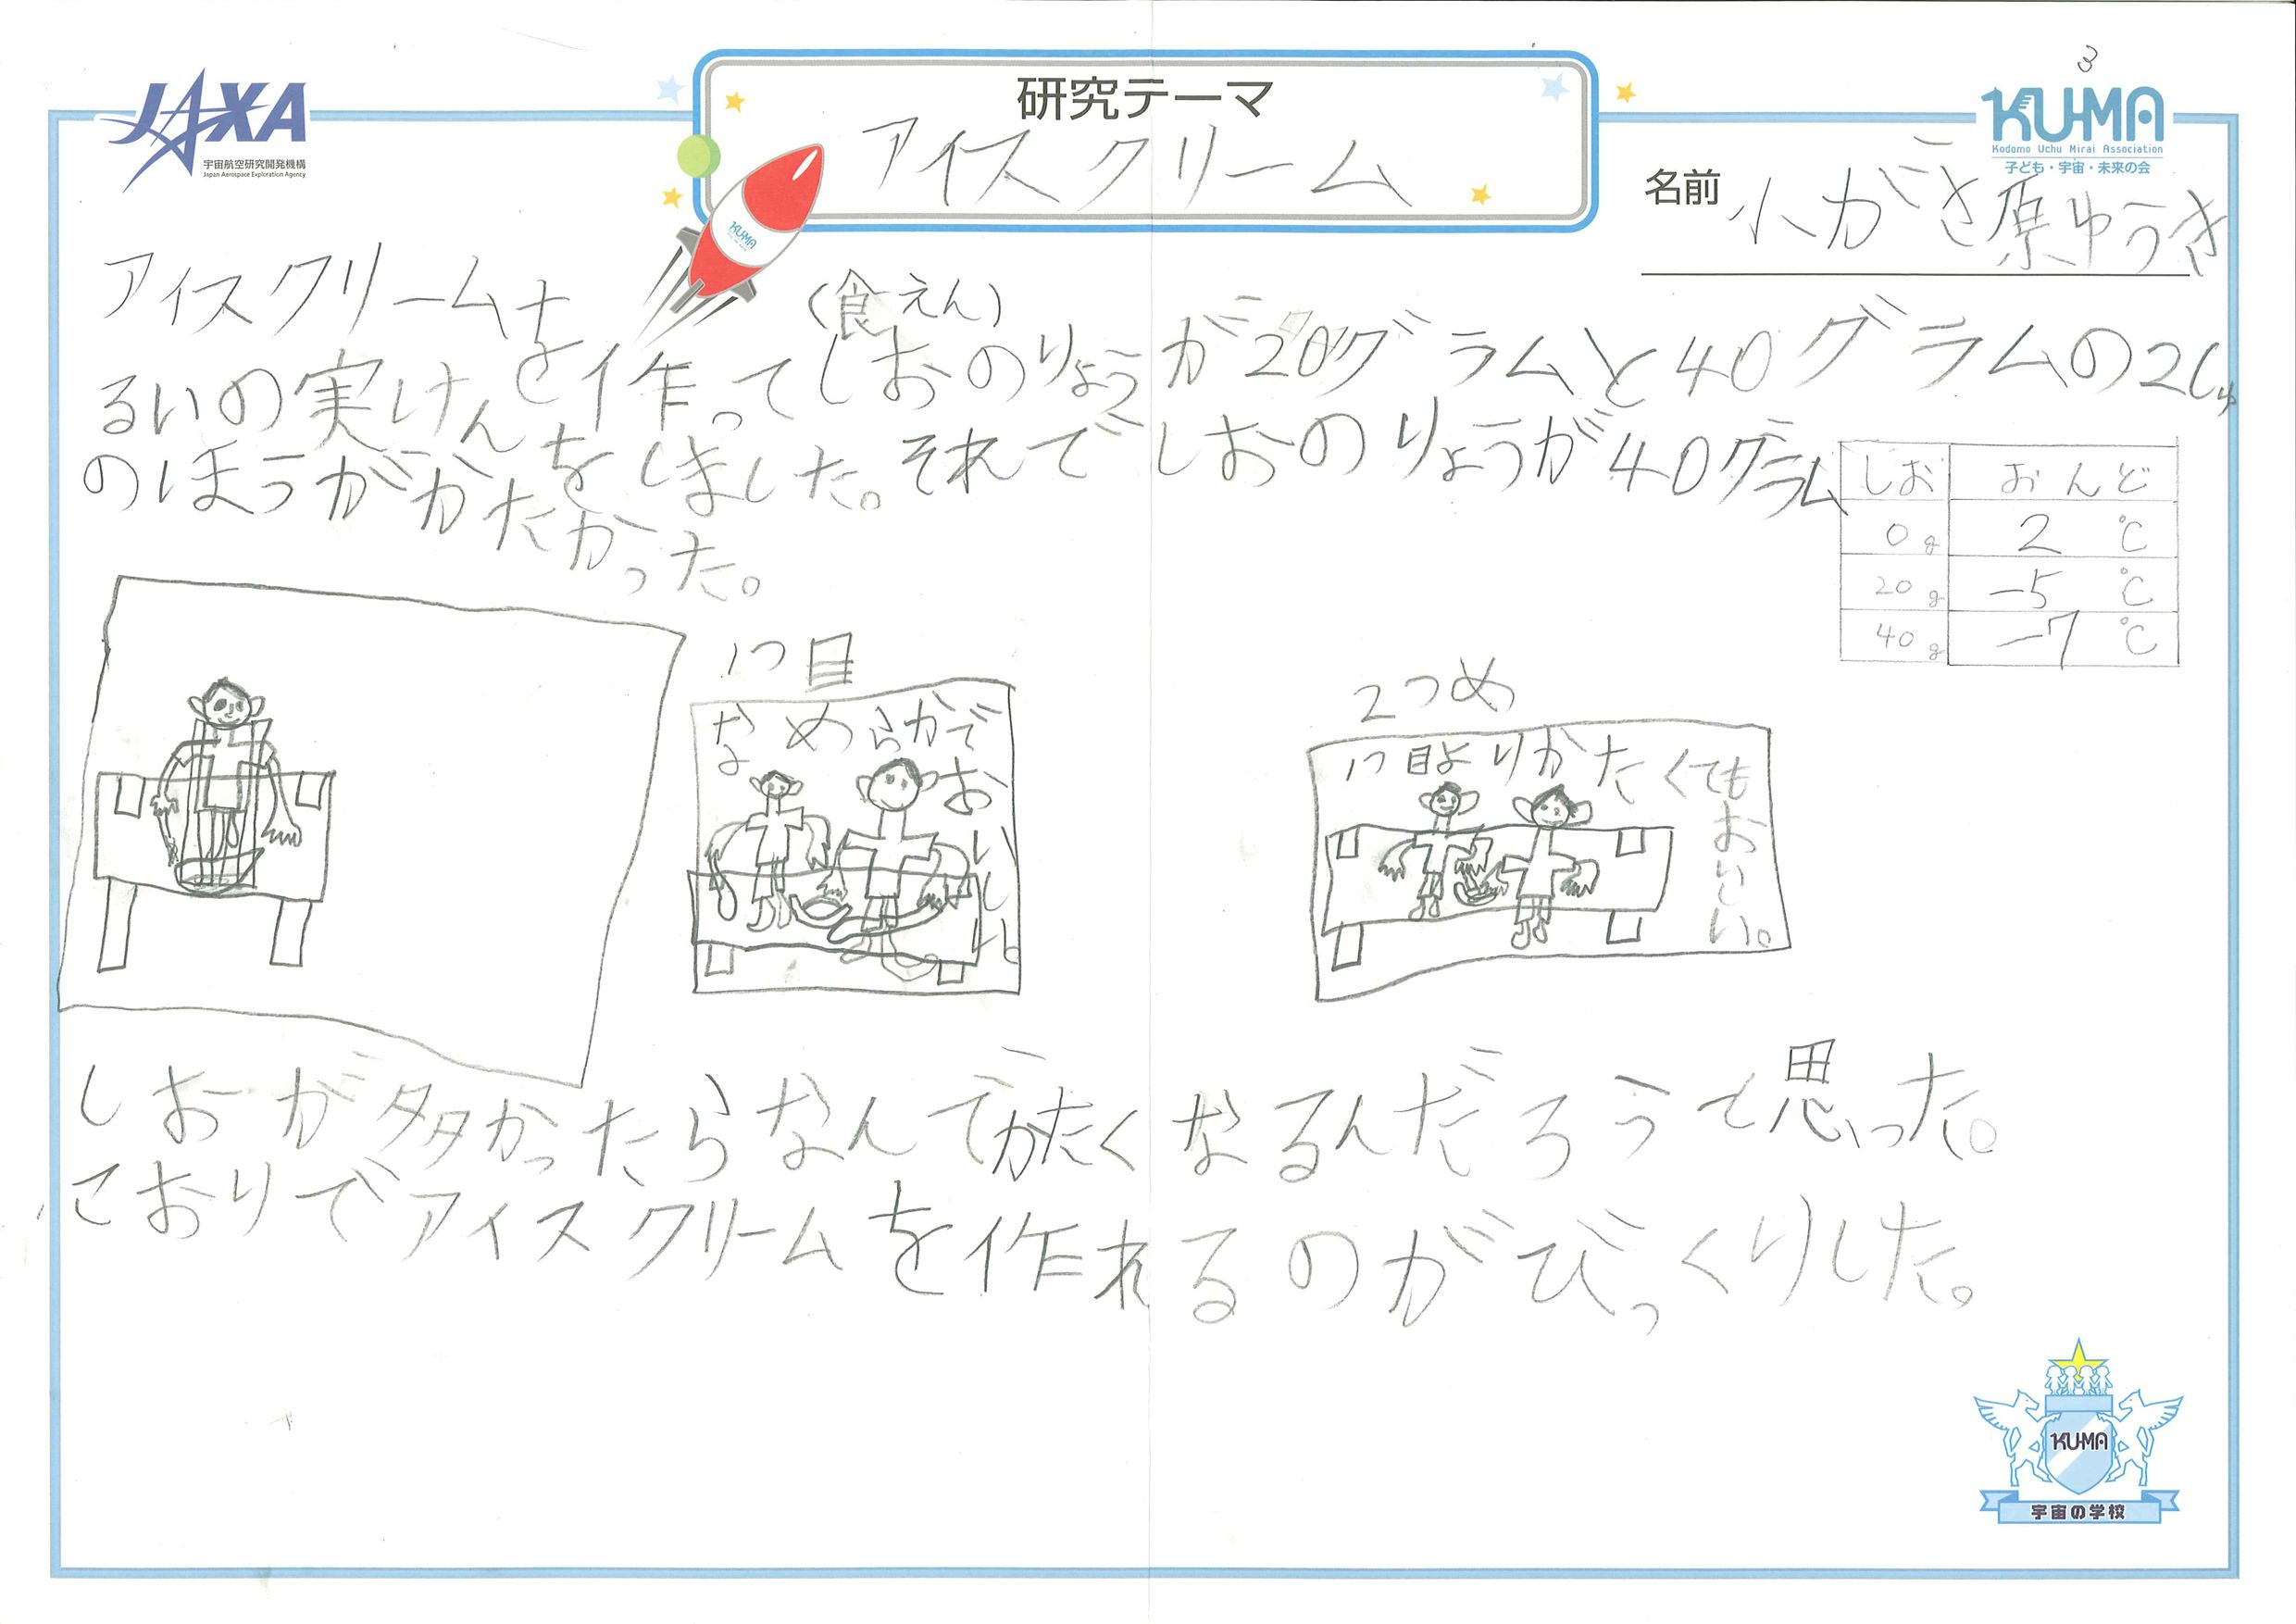 3
JAXA
宇宙航空研究開発機構
Japan Aerospace Exploration Agency
研究テーマ
アイスクリーム
KUMA
Kodomo Uchu Mirai Association
子ども・宇宙・未来の会
名前 小がさ原ゆうき
KUMA
(食えん)
アイスクリームを作ってしおのりょうが20グラムと40グラムの2しゅ
るいの実けんをしました。それでしおのりょうが40グラム
のほうがかたかった。
しお おんど
0g 2℃
20g -5℃
40g -7℃
1つ目
なめらかで
おいしい。
2つめ
1つ目よりかたくても
おいしい。
しおが多かったらなんでかたくなるんだろうて思った。
こおりでアイスクリームを作れるのがびっくりした。
KUMA
宇宙の学校